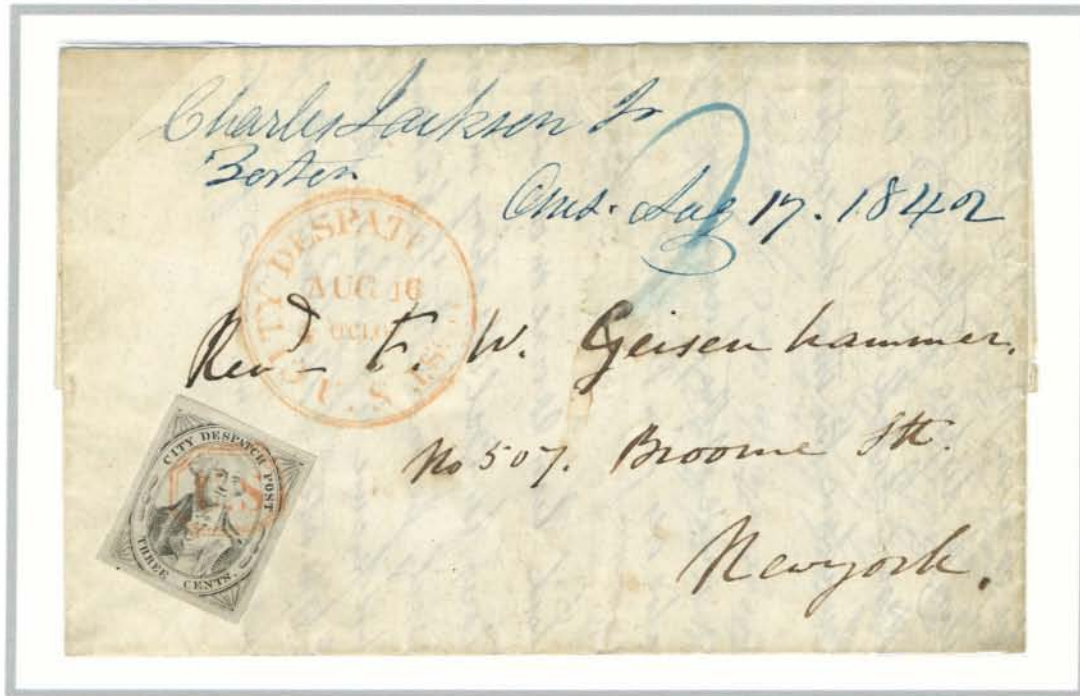 Charles Jackson Jr
Boston
Ans. Aug 17. 1842
2
U.S. CITY DESPATCH
AUG 16
OCLO
Revd F. W. Geisenhammer.
No 507. Broome Stt.
Newyork.
CITY DESPATCH POST
U.S
THREE CENTS.